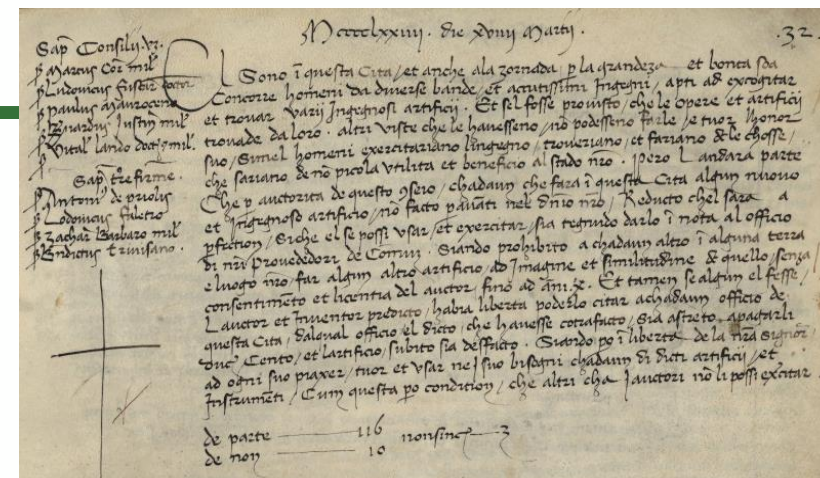 Mcccclxxiiii. die xviiii Martii.
.32.
Sap. Consilii. Vz.
Marcus Cor mil
Ludovicus Fuscar. doctor
Paulus Mauroceno
Bnardus Justin mil
Vital lando doct. z mil.
Sap. t.re firme.
Antoni' de priolis
Lodovicus Faletro
Zachar. Barbaro mil
Bndictus Trivisano.
El Sono i questa Cita, et anche ala zornada p la grandeza et bonta soa
Concorre homeni da diverse bande, et accutissimi Ingegni, apti ad excogitar
et trovar varij Ingegnosi artificij. Et sel fosse provisto, che le opere et artificij
trovade da loro. altri viste che le havesseno, nō podesseno farle, e tuor l honor
suo, Simel homeni exercitariano lingegno, troveriano, et fariano de le chosse,
che sariano de nō picola utilita et beneficio al stado nro. Pero L andara parte
Che p auctorita de questo Conseio, chadaun che fara i questa Cita algun nuovo
et Ingegnoso artificio, nō facto p avanti nel dnio nro, Reducto chel sara a
pfection, Siche el se possi usar, et exercitar, sia tegnudo darlo i nota al officio
di nri Provededori de Comun. Siando prohibito a chadaun altro i alguna terra
e luogo nro, far algun altro artificio, ad Imagine et similitudine de quello, senza
consentimēto et licentia del auctor, fino ad āni .x. Et tamen se algun el fesse,
L auctor et Inventor predicto, habia liberta poderlo citar a chadaun officio de
questa Cita, dal qual officio el dicto, che havesse cōtrafacto, Sia astreto, apagarli
duc Cento, et lartificio, subito sia desfacto. Siando po i liberta de la nra Signor
ad ogni suo piaxer, tuor et usar ne i suo bisogni chadaun di dicti artificij, et
Instrumēti, Cum questa po condition, che altri cha i auctori nō li possi exercitar.
de parte 116 nonsinc. 3
de non 10